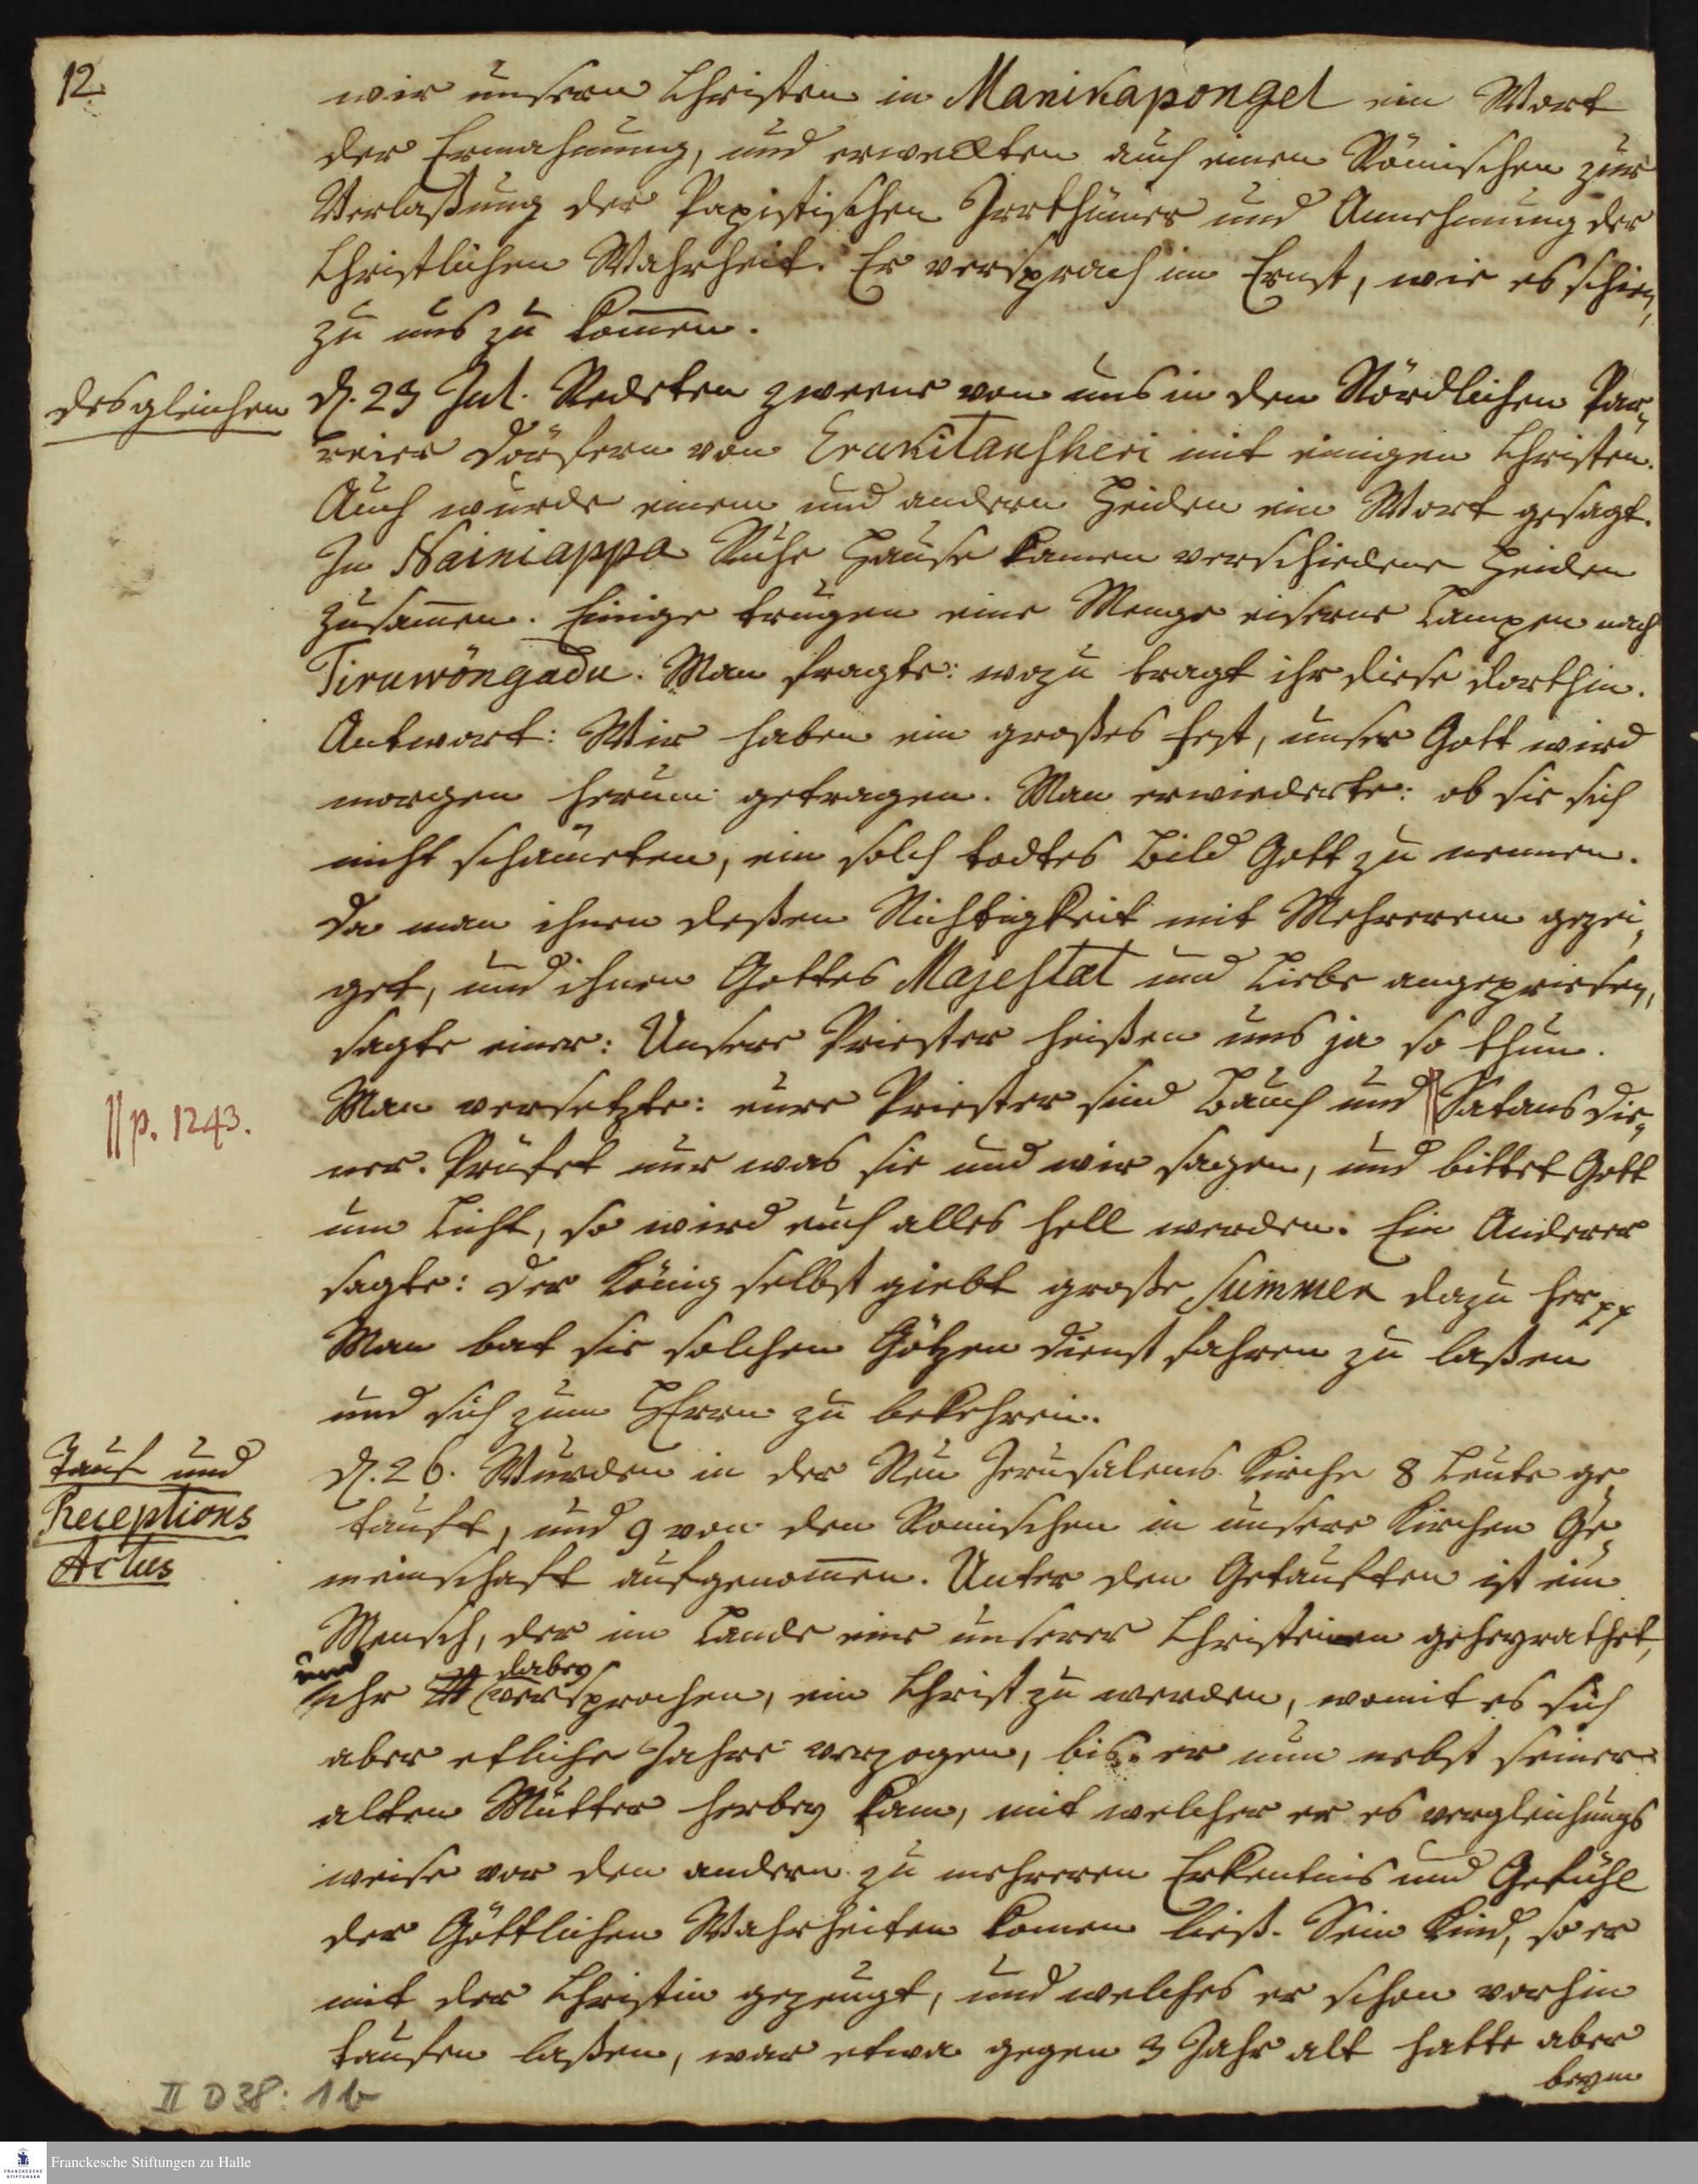 12.
wir unsern Christen in Manikapongel ein Wort
der Ermahnung, und erweckten auch einen Römischen zur
Verlaßung der Papistischen Irrthümer und Annehmung der
Christlichen Wahrheit. Er versprach im Ernst, wie es schien,
zu uns zu kom̄en.
desgleichen
d. 23 Jul. Redeten zweene von uns in den Nördlichen Par„
reier Dörfern von Erukitanscheri mit einigen Christen.
Auch wurde einem und andern Heiden ein Wort gesagt.
In Nainiappa Ruhe Hause kamen verschiedene Heiden
zusam̄en. Einige trugen eine Menge eiserne Lampen nach
Tiruwöngadu. Man fragte: wozu tragt ihr diese dorthin.
Antwort: Wir haben ein großes Fest, unser Gott wird
morgen herum getragen. Man erwiederte: ob sie sich
nicht schämeten, ein solch todtes Bild Gott zu nennen.
Da man ihnen deßen Nichtigkeit mit Mehrerem gezei„
get, und ihnen Gottes Majestät und Liebe angepriesen,
sagte einer: Unsere Priester heißen uns ja so thun.
Man versetzte: eure Priester sind Bauch und || Satans Die„
|| p. 1243.
ner. Prüfet nur was sie und wir sagen, und bittet Gott
um Licht, so wird euch alles hell werden. Ein Anderer
sagte: der König selbst giebt große Summen dazu her pp
Man bat sie solchen Götzen dienst fahren zu laßen
und sich zum HErrn zu bekehren.
Tauf und
Receptions
Actus
d. 26. Wurden in der Neu Jerusalems Kirche 8 Leute ge„
tauft, und 9 von den Römischen in unsere Kirchen Ge„
meinschaft aufgenom̄en. Unter den Getauften ist ein
Mensch, der im Lande eine unserer Christinen geheyrathet,
und
ihr dabey versprochen, ein Christ zu werden, womit es sich
aber etliche Jahre verzogen, bis er nun nebst seiner
alten Mutter herbey kam, mit welcher er es vergleichungs
weise vor den andern zu mehreren Erkentnis und Gefühl
der Göttlichen Wahrheiten komen ließ. Sein Kind, so er
mit der Christin gezeugt, und welches er schon vorhin
taufen laßen, war etwa gegen 3 Jahr alt hatte aber
beym
II D 38: 1b
Franckesche Stiftungen zu Halle